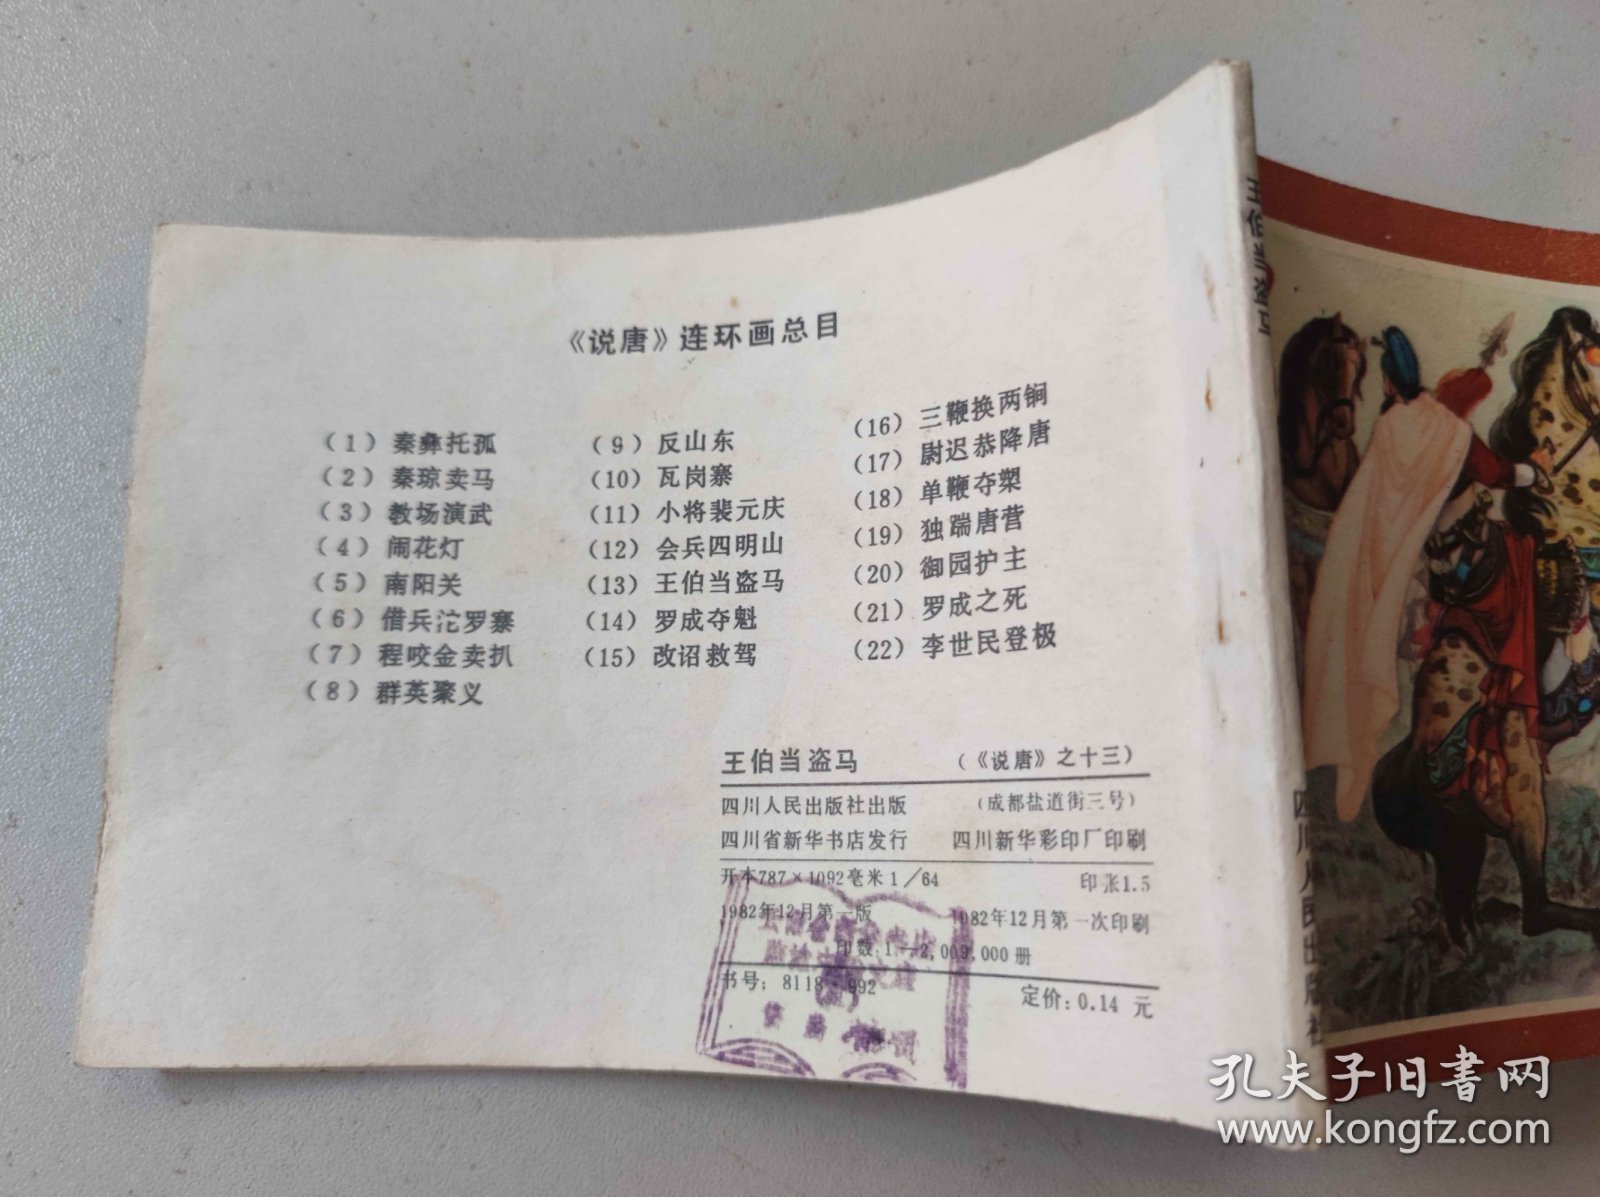 《说唐》连环画总目
(1) 秦彝托孤
(2) 秦琼卖马
(3) 教场演武
(4) 闹花灯
(5) 南阳关
(6) 借兵沱罗寨
(7) 程咬金卖扒
(8) 群英聚义
(9) 反山东
(10) 瓦岗寨
(11) 小将裴元庆
(12) 会兵四明山
(13) 王伯当盗马
(14) 罗成夺魁
(15) 改诏救驾
(16) 三鞭换两锏
(17) 尉迟恭降唐
(18) 单鞭夺槊
(19) 独踹唐营
(20) 御园护主
(21) 罗成之死
(22) 李世民登极
王伯当盗马 (《说唐》之十三)
四川人民出版社出版 (成都盐道街三号)
四川省新华书店发行 四川新华彩印厂印刷
开本787×1092毫米1/64 印张1.5
1982年12月第一版 1982年12月第一次印刷
印数:1—2,009,000册
书号:8118·992 定价:0.14元
王伯当盗马
四川人民出版社
孔夫子旧书网
www.kongfz.com